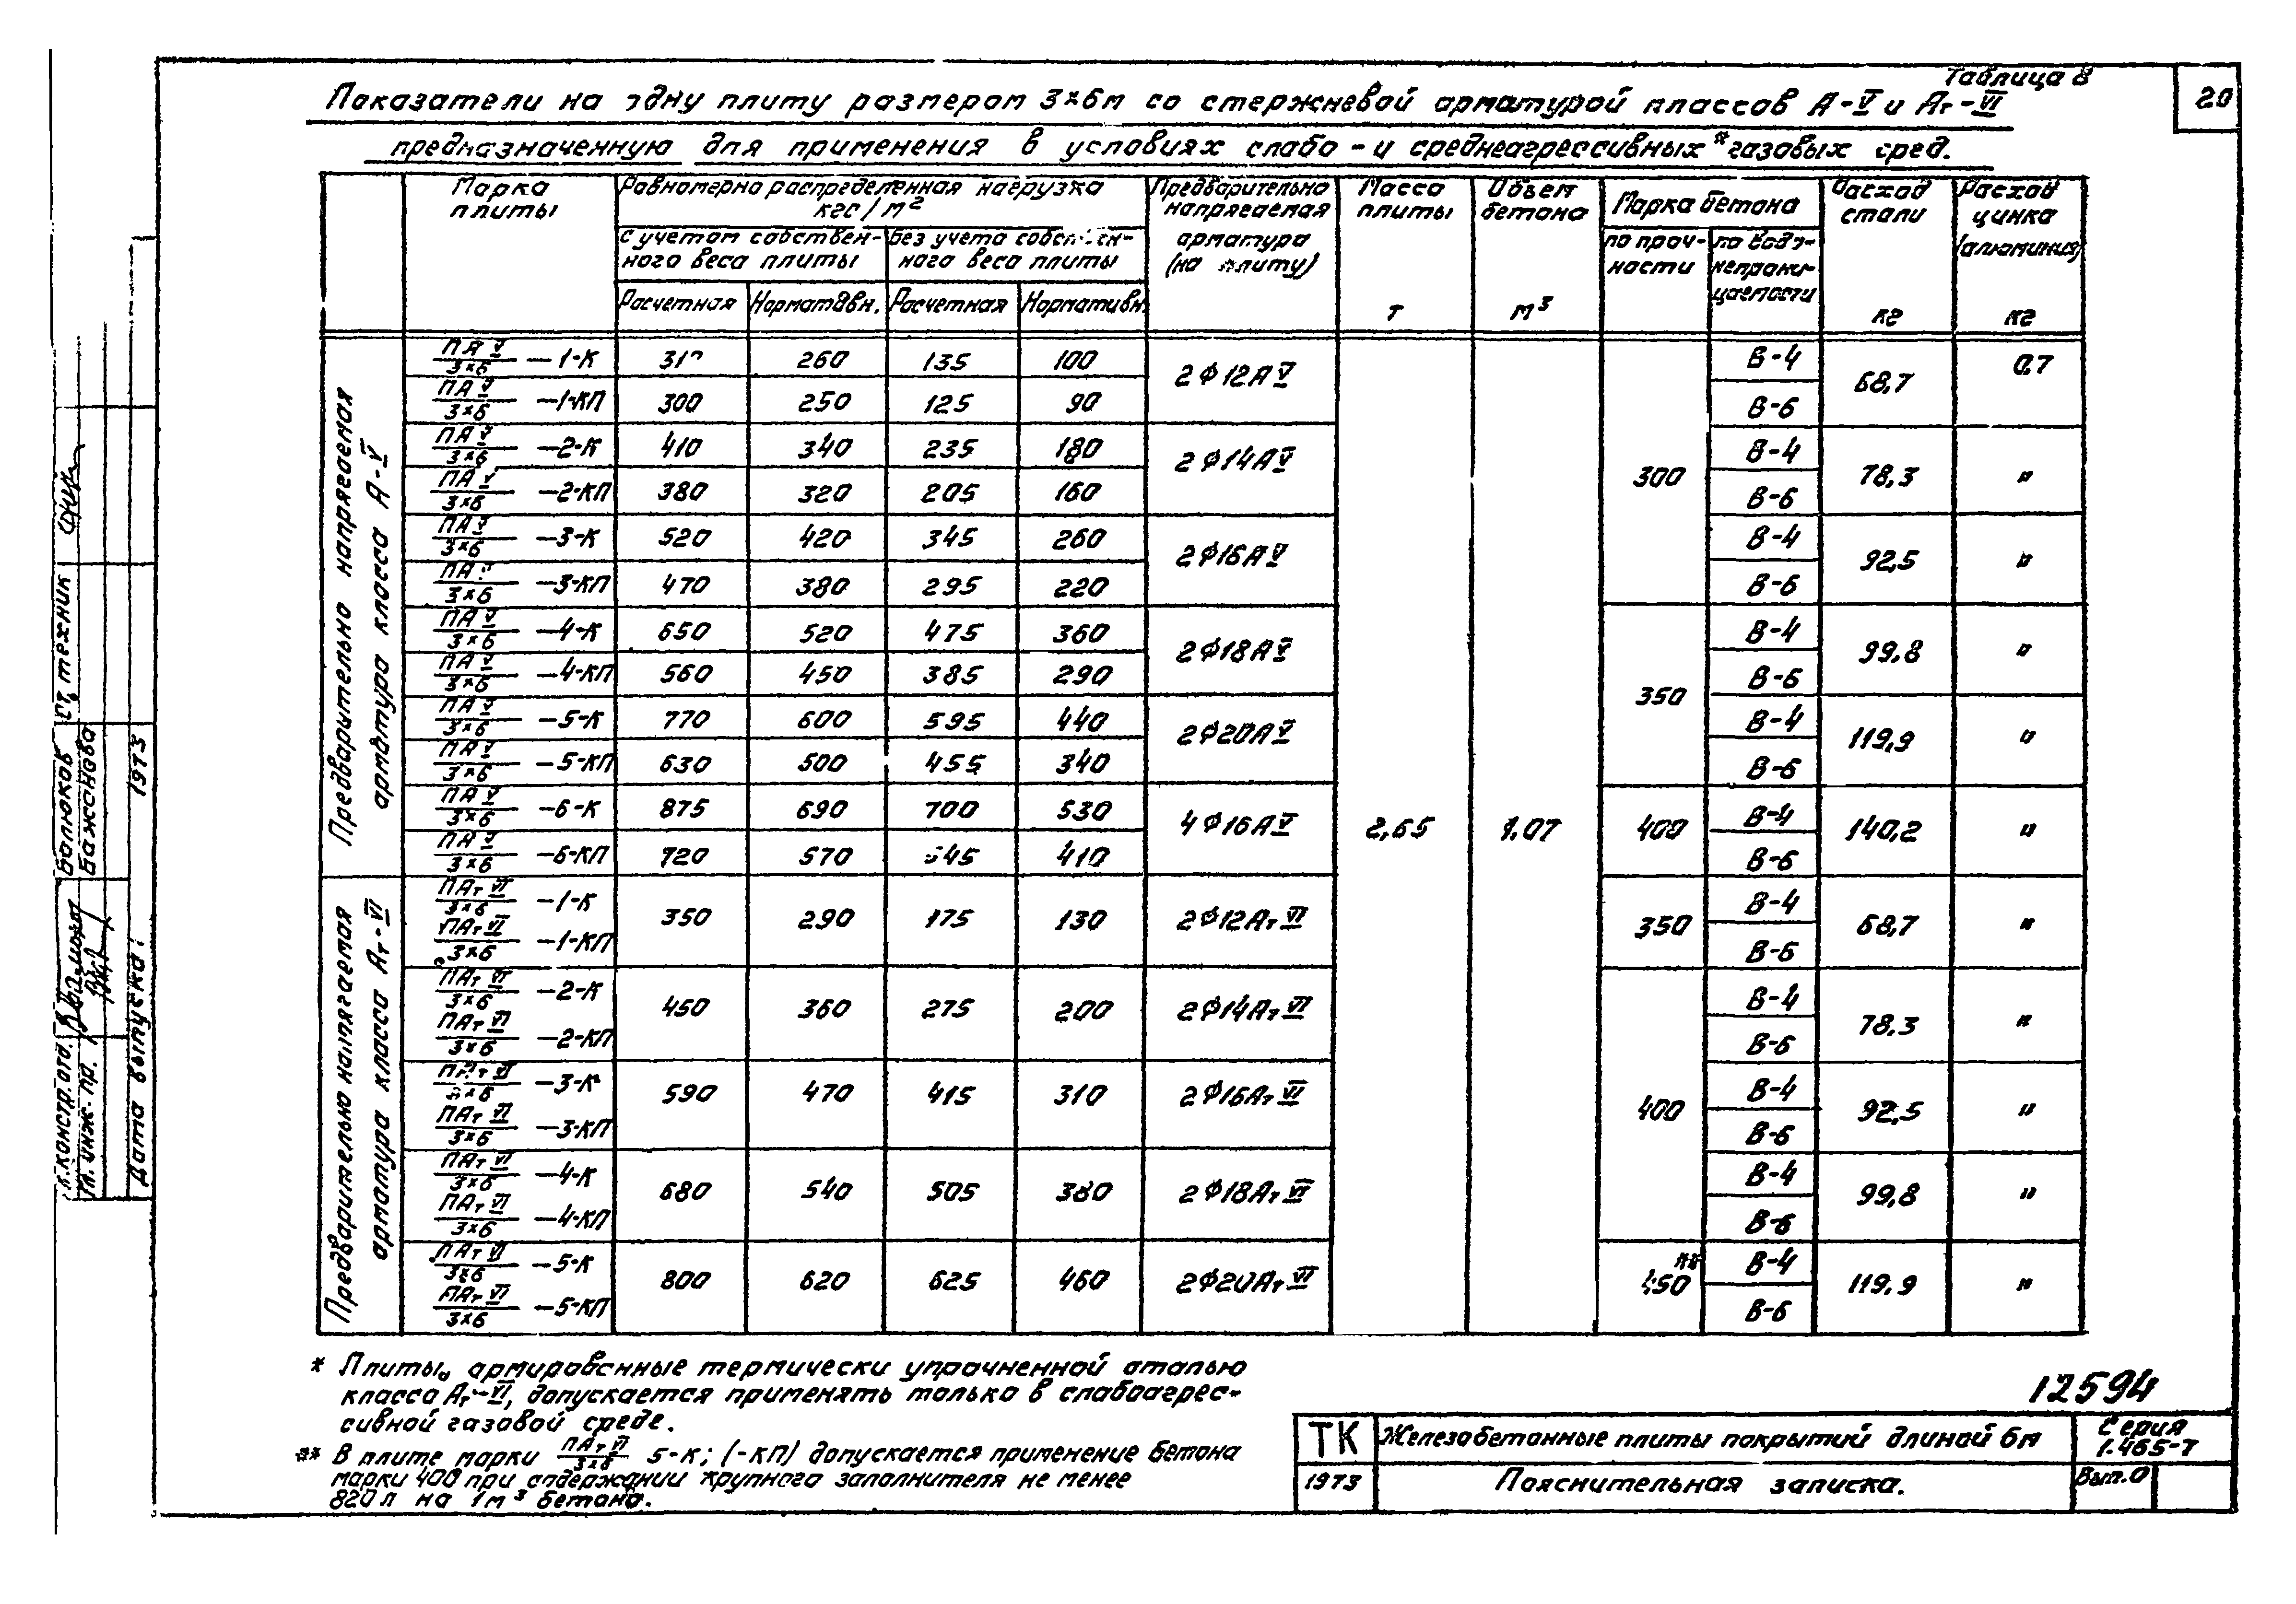 Таблица 8
20
Показатели на одну плиту размером 3×6м со стержневой арматурой классов А-V и Ат-VI
предназначенную для применения в условиях слабо- и среднеагрессивных* газовых сред.
Марка плиты
Равномерно распределенная нагрузка кгс/м²
с учетом собственного веса плиты
Без учета собственного веса плиты
Расчетная Нормативн. Расчетная Нормативн.
Предварительно напрягаемая арматура (на плиту)
Масса плиты т
Объем бетона м³
Марка бетона
по прочности
по водонепроницаемости
Расход стали кг
Расход цинка (алюминия) кг
Предварительно напрягаемая арматура класса А-V
ПАV/3×6 -1-К 310 260 135 100 2Ф12АV 2,65 1.07 300 В-4 68,7 0,7
ПАV/3×6 -1-КП 300 250 125 90 В-6
ПАV/3×6 -2-К 410 340 235 180 2Ф14АV В-4 78,3 "
ПАV/3×6 -2-КП 380 320 205 160 В-6
ПАV/3×6 -3-К 520 420 345 260 2Ф16АV В-4 92,5 "
ПАV/3×6 -3-КП 470 380 295 220 В-6
ПАV/3×6 -4-К 650 520 475 360 2Ф18АV 350 В-4 99,8 "
ПАV/3×6 -4-КП 560 450 385 290 В-6
ПАV/3×6 -5-К 770 600 595 440 2Ф20АV В-4 119,9 "
ПАV/3×6 -5-КП 630 500 455 340 В-6
ПАV/3×6 -6-К 875 690 700 530 4Ф16АV 400 В-4 140,2 "
ПАV/3×6 -6-КП 720 570 545 410 В-6
Предварительно напрягаемая арматура класса Ат-VI
ПАтVI/3×6 -1-К 350 290 175 130 2Ф12АтVI 350 В-4 68,7 "
ПАтVI/3×6 -1-КП В-6
ПАтVI/3×6 -2-К 450 360 275 200 2Ф14АтVI 400 В-4 78,3 "
ПАтVI/3×6 -2-КП В-6
ПАтVI/3×6 -3-К 590 470 415 310 2Ф16АтVI В-4 92,5 "
ПАтVI/3×6 -3-КП В-6
ПАтVI/3×6 -4-К 680 540 505 380 2Ф18АтVI В-4 99,8 "
ПАтVI/3×6 -4-КП В-6
ПАтVI/3×6 -5-К 800 620 625 460 2Ф20АтVI 450** В-4 119,9 "
ПАтVI/3×6 -5-КП В-6
* Плиты, армированные термически упрочненной сталью
класса Ат-VI, допускается применять только в слабоагрес-
сивной газовой среде.
** В плите марки ПАтVI/3×6 5-К; (-КП) допускается применение бетона
марки 400 при содержании крупного заполнителя не менее
820л на 1м³ бетона.
12594
ТК
1973
Железобетонные плиты покрытий длиной 6м
Пояснительная записка.
Серия
1.465-7
Вып.0
Гл. констр. отд.
Гл. инж. пр.
Дата выпуска:
1973
Бажанова
Ст. техник